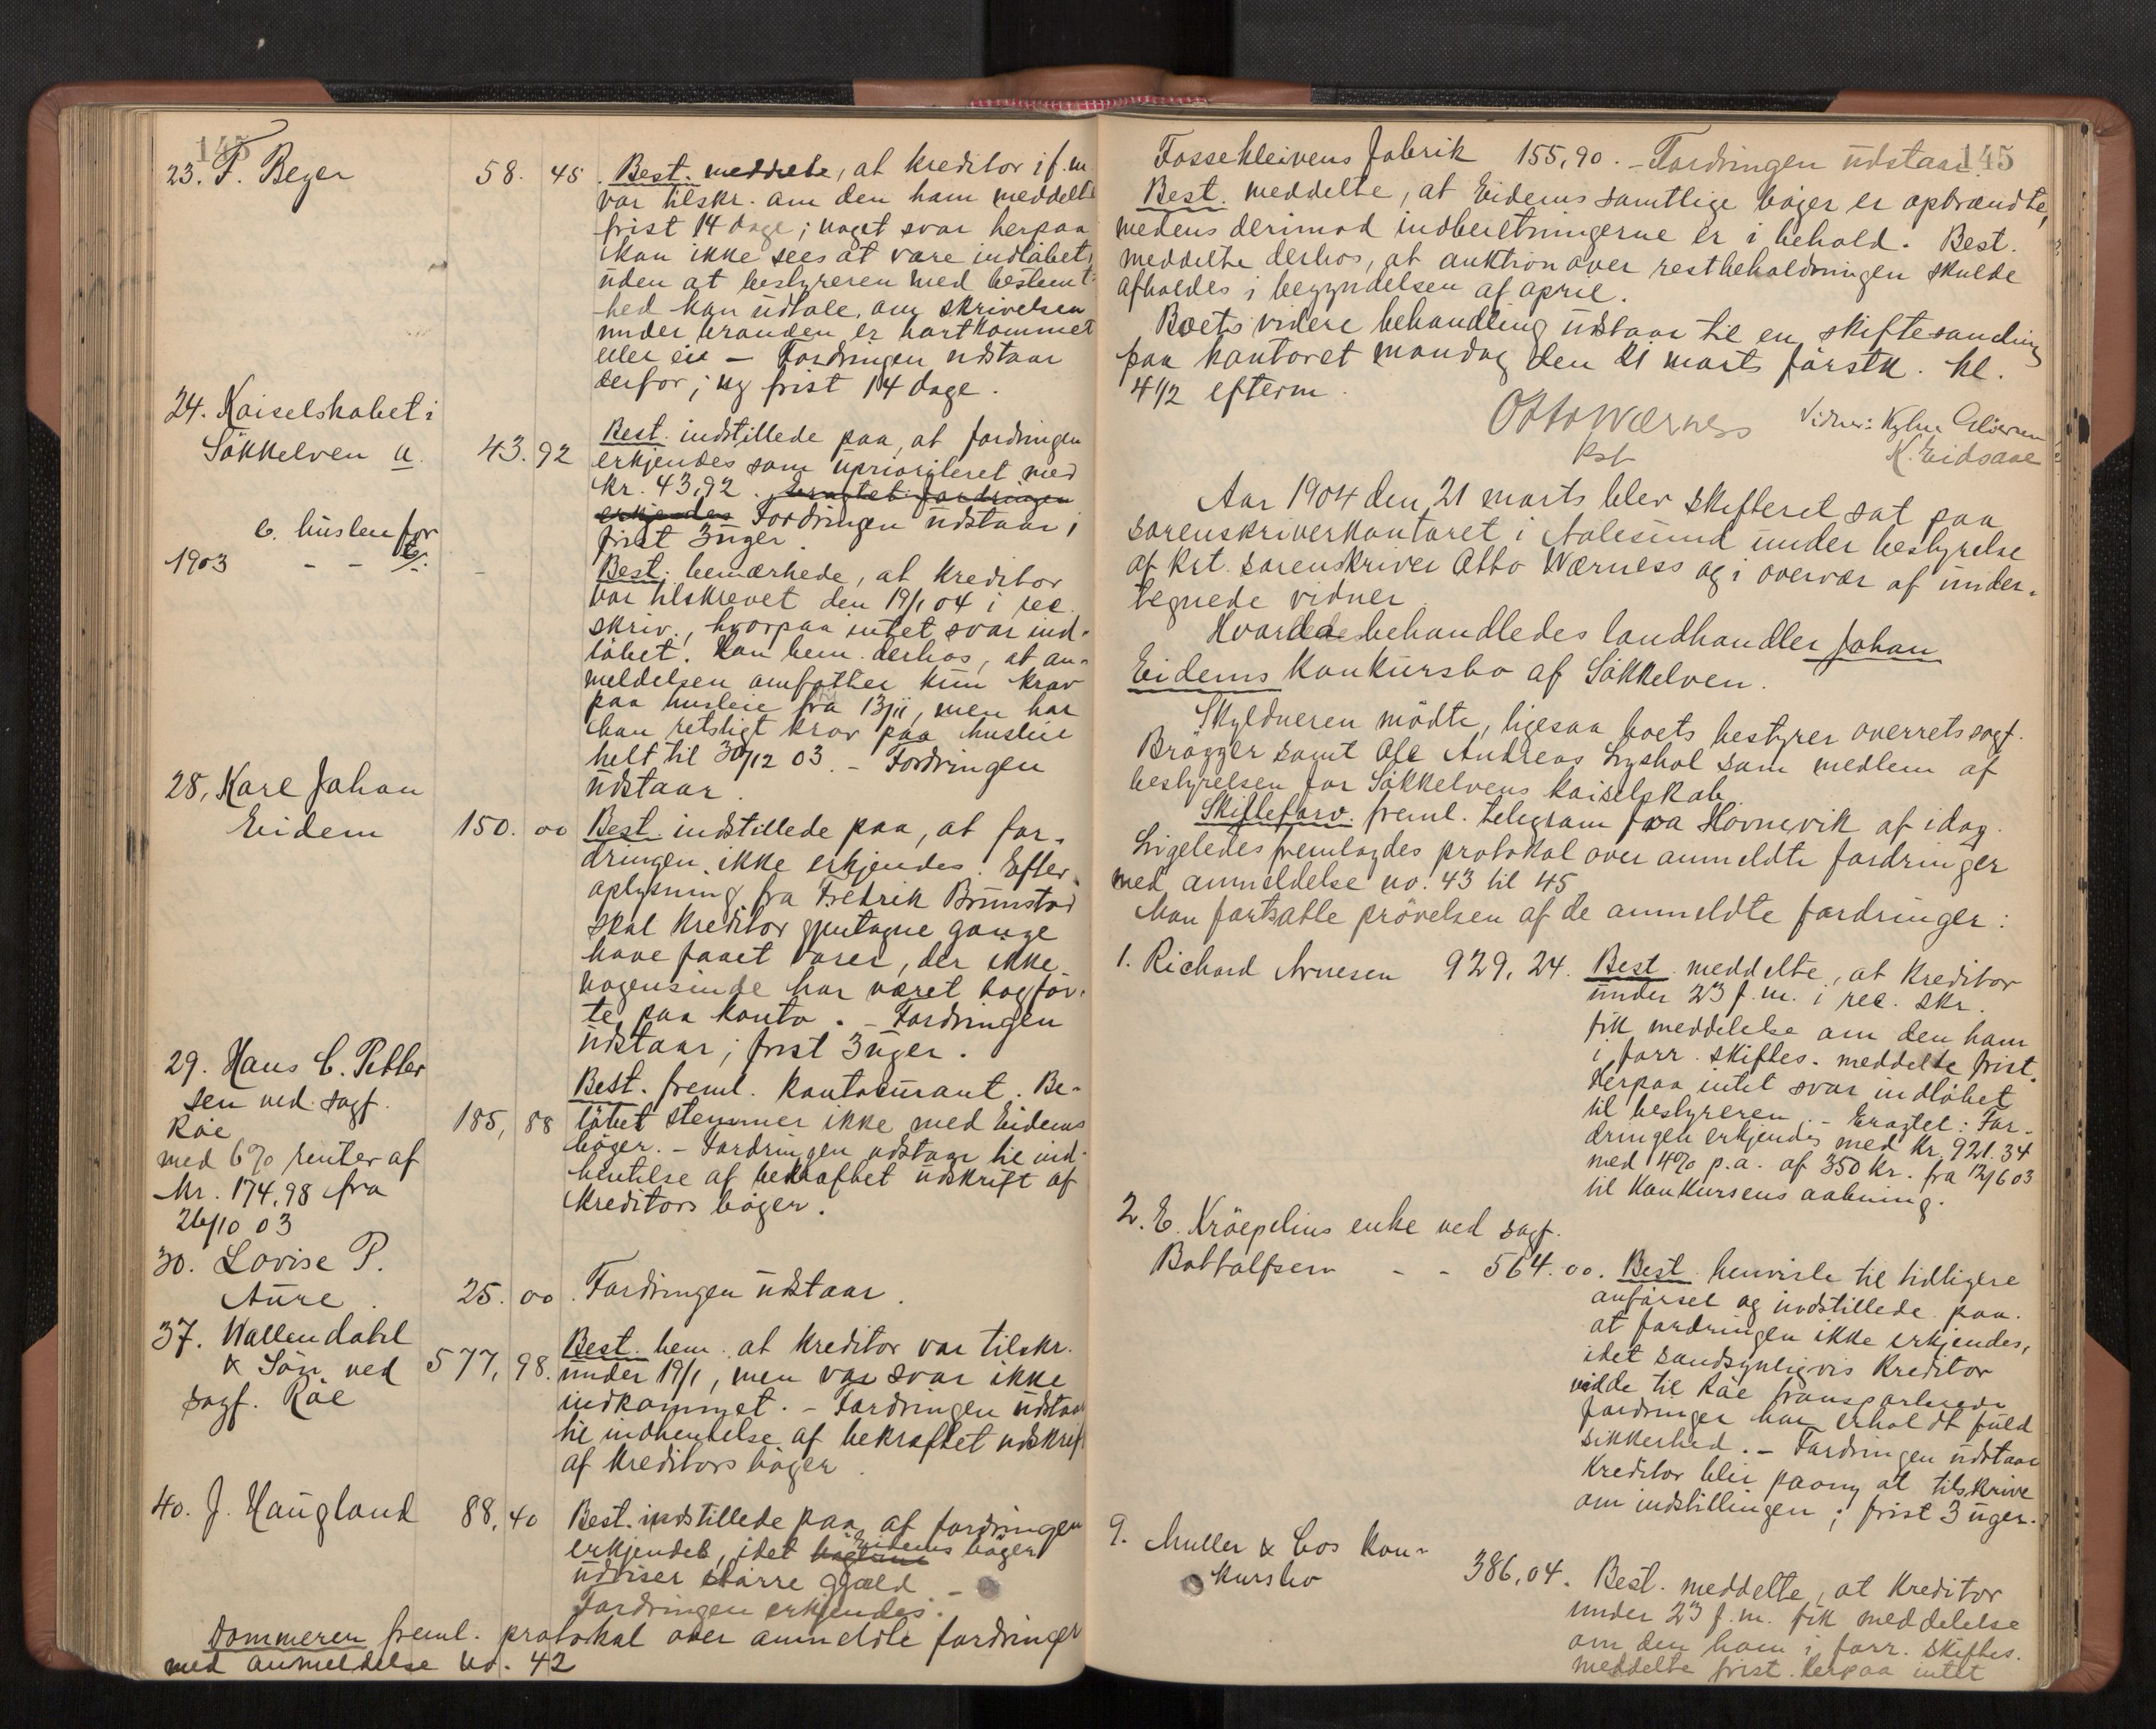 145
23. F. Beyer 58. 45. Best. meddelte, at kreditor i f. m.
var tilskr. om den ham meddelte
frist 14 dage; noget svar herpaa
kan ikke sees at være indløbet,
uden at bestyreren med bestemt-
hed kan udtale, om skrivelsen
under branden er bortkommet
eller ei – Fordringen udstaar
derfor; ny frist 14 dage.
24. Kaiselskabet i
Søkkelven a. 43.92 Best. indstillede paa, at fordringen
erkjendes som uprioriteret med
kr. 43,92. Eragtet: fordringen
erkjendes Fordringen udstaar;
frist 3 uger.
c. huslen for
1903 - - Best. bemærkede, at kreditor
var tilskrevet den 19/1 04 i rec.
skriv., hvorpaa intet svar ind-
løbet. Han bem. derhos, at an-
meldelsen omfatter kun krav
paa husleie fra 13/11, men har
han retsligt krav paa husleie
helt til 30/12 03. – Fordringen
udstaar.
28. Karl Johan
Eidem 150. 00 Best. indstillede paa, at for-
dringen ikke erkjendes. Efter
oplysning fra Fredrik Brunstad
skal kreditor gjentagne gange
have faaet varer, der ikke
nogensinde har været bogfør-
te paa konto. – Fordringen
udstaar; frist 3 uger.
29. Hans C. Petter
sen ved sagf.
Röe 185, 88 Best. freml. kontocurant. Be-
løbet stemmer ikke med Eidems
bøger. – Fordringen udstaar til ind-
hentelse af bekræftet udskrift af
kreditors bøger.
med 6% renter af
Kr. 174,98 fra
26/10 03
30. Lovise P.
Aure. 25. 00. Fordringen udstaar.
37. Wallendahl
& Søn ved 577, 98. Best. bem. at kreditor var tilskr.
sagf. Röe under 19/1, men var svar ikke
indkommet. – Fordringen udstaar
til indhentelse af bekræftet udskrift
af kreditors bøger.
40. J. Haugland 88,40 Best. indstillede paa at fordringen
erkjendes, idet Eidems bøger
udviser større gjæld –
Fordringen erkjendes.
Dommeren freml. protokol over anmeldte fordringer
med anmeldelse no. 42
145
Fossekleivens Fabrik 155,90. – Fordringen udstaar.
Best. meddelte, at Eidems samtlige bøger er opbrændte,
medens derimod indberetningerne er i behold. Best.
meddelte derhos, at auktion over restbeholdningen skulde
afholdes i begyndelsen af april.
Boets videre behandling udstaar til en skiftesamling
paa kontoret mandag den 21 marts førstk. kl.
4 1/2 efterm.
Otto Wærness Vidner:
Kst K. Eidsaae
Aar 1904 den 21 marts blev skifteret sat paa
sorenskriverkontoret i Aalesund under bestyrelse
af kst. sorenskriver Otto Wærness og i overvær af under-
tegnede vidner.
Hvorda behandledes landhandler Johan
Eidems konkursbo af Søkkelven.
Skyldneren mødte, ligesaa boets bestyrer overretssagf.
Brøgger samt Ole Andreas Lyshol som medlem af
bestyrelsen for Søkkelvens kaiselskab.
Skifteforv. freml. telegram fra Hovnevik af idag.
Ligeledes fremlagdes protokol over anmeldte fordringer
med anmeldelse no. 43 til 45
Man fortsatte prøvelsen af de anmeldte fordringer:
1. Richard Arnesen 929, 24. Best. meddelte, at kreditor
under 23 f. m. i rec. skr.
fik meddelelse om den ham
i forr. skiftes. meddelte frist.
Herpaa intet svar indløbet
til bestyreren. – Eragtet: For-
dringen erkjendes med kr. 921.34
med 4% p.a. af 350 kr. fra 12/6 03
til konkursens aabning.
2. E. Kröepelins enke ved sagf.
Bottolfsen - - 564.00. Best. henviste til tidligere
anførsel og indstillede paa.
at fordringen ikke erkjendes,
idet sandsynligvis kreditor
ved de til Röe transporterede
fordringer har erholdt fuld
sikkerhed. – Fordringen udstaar
Kreditor blir paany at tilskrive
om indstillingen; frist 3 uger.
9. Muller & Cos kon-
kursbo 386,04. Best. meddelte, at kreditor
under 23 f. m. fik meddelelse
om den ham i forr. skiftes.
meddelte frist. Herpaa intet